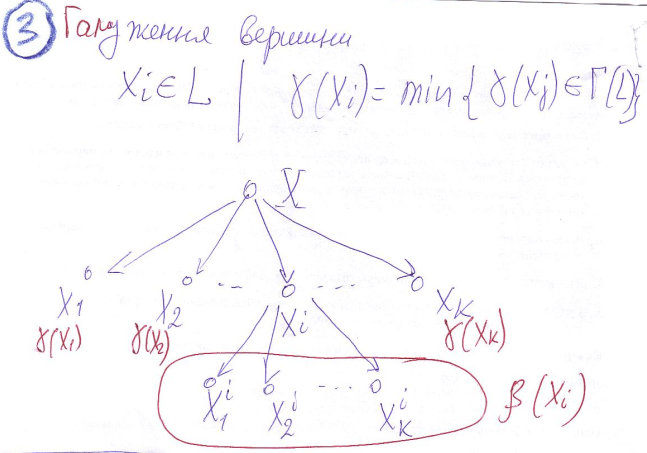 3 Галуження вершини
Xi ∈ L | γ(Xi) = min { γ(Xj) ∈ Γ(L)}
X
X1 X2 -- Xi --- XK
γ(X1) γ(X2) γ(XK)
X1^i X2^i --- XK^i β(Xi)